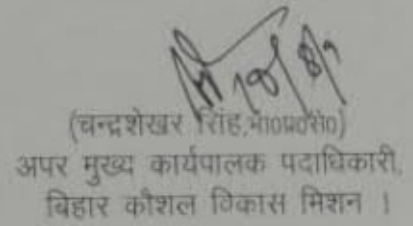 (चन्द्रशेखर सिंह,भा०प्र०से०)
अपर मुख्य कार्यपालक पदाधिकारी,
बिहार कौशल विकास मिशन ।